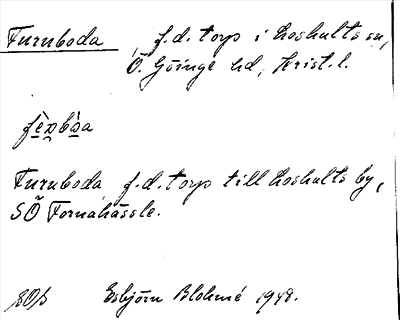 Furuboda, f.d. torp i Loshults sn,
Ö. Göinge hd, Krist. l.
Furuboda f.d. torp till Loshults by,
SÖ Fornahässle.
Esbjörn Blohmé 1948.